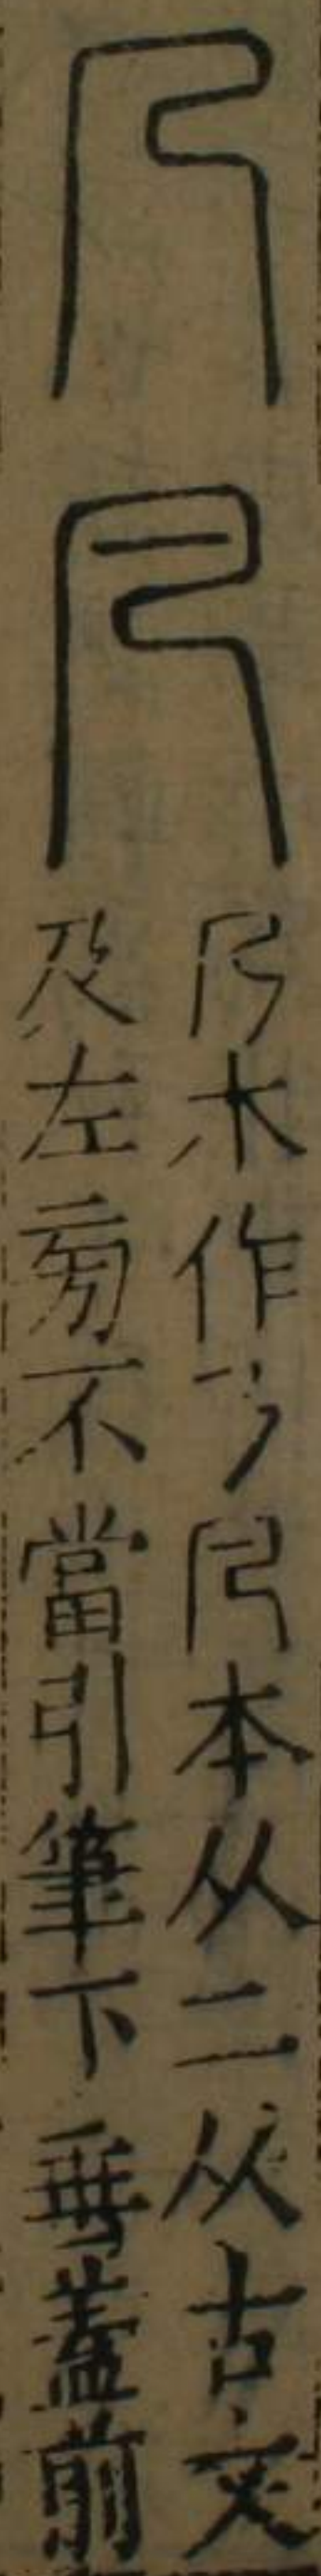 乃凡
乃木作𠄎凡本从二从古文
及左旁不當引筆下垂蓋前